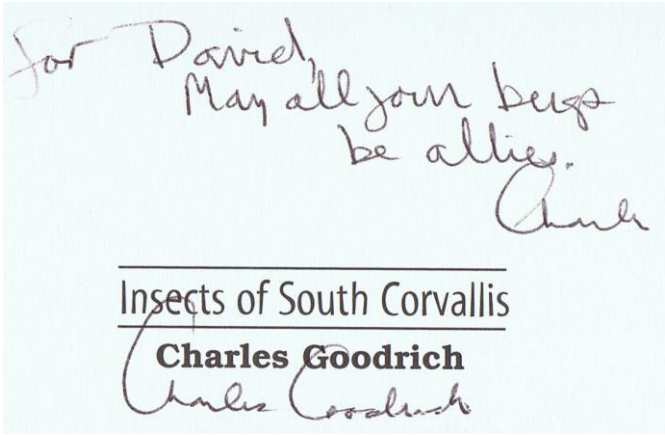 For David,
May all your bugs
be allies.
Charles
Insects of South Corvallis
Charles Goodrich
Charles Goodrich